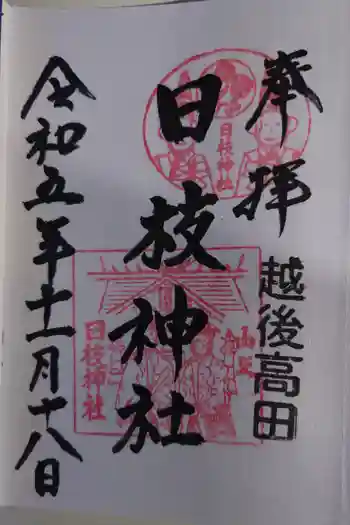 奉拝
越後高田
日枝神社
日枝神社
日枝神社
令和五年十一月十八日